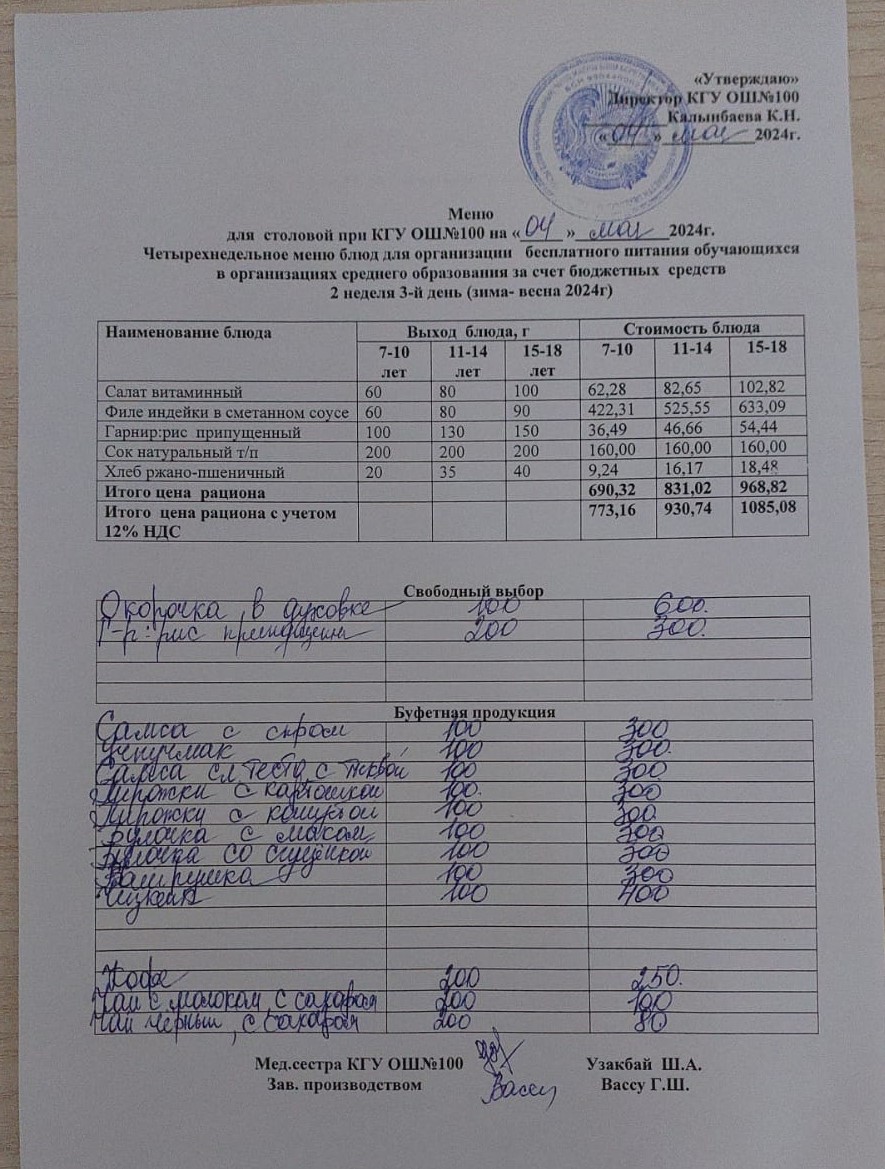 «Утверждаю»
Директор КГУ ОШ№100
Калынбаева К.Н.
«04» май 2024г.
Меню
для столовой при КГУ ОШ№100 на «04» май 2024г.
Четырехнедельное меню блюд для организации бесплатного питания обучающихся
в организациях среднего образования за счет бюджетных средств
2 неделя 3-й день (зима- весна 2024г)
Наименование блюда Выход блюда, г Стоимость блюда
7-10 лет 11-14 лет 15-18 лет 7-10 11-14 15-18
Салат витаминный 60 80 100 62,28 82,65 102,82
Филе индейки в сметанном соусе 60 80 90 422,31 525,55 633,09
Гарнир:рис припущенный 100 130 150 36,49 46,66 54,44
Сок натуральный т/п 200 200 200 160,00 160,00 160,00
Хлеб ржано-пшеничный 20 35 40 9,24 16,17 18,48
Итого цена рациона 690,32 831,02 968,82
Итого цена рациона с учетом 773,16 930,74 1085,08
12% НДС
Свободный выбор
Окорочка в духовке 100 600.
Г-р: рис 200 300.
Буфетная продукция
Самса с сыром 100 300
Учпучмак 100 300.
Самса сл тесто с 100 300
Пирожки с картошкой 100. 300
Пирожки с 100 300
Булочка с маком 100 300
Булочка со сгущёнкой 100 300
Ватрушка 100 300
Чизкейк 100 400
Кофе 200 250.
Чай с молоком, с сахаром 200 100
Чай черный, с сахаром 200 80
Мед.сестра КГУ ОШ№100 Узакбай Ш.А.
Зав. производством Вассу Вассу Г.Ш.